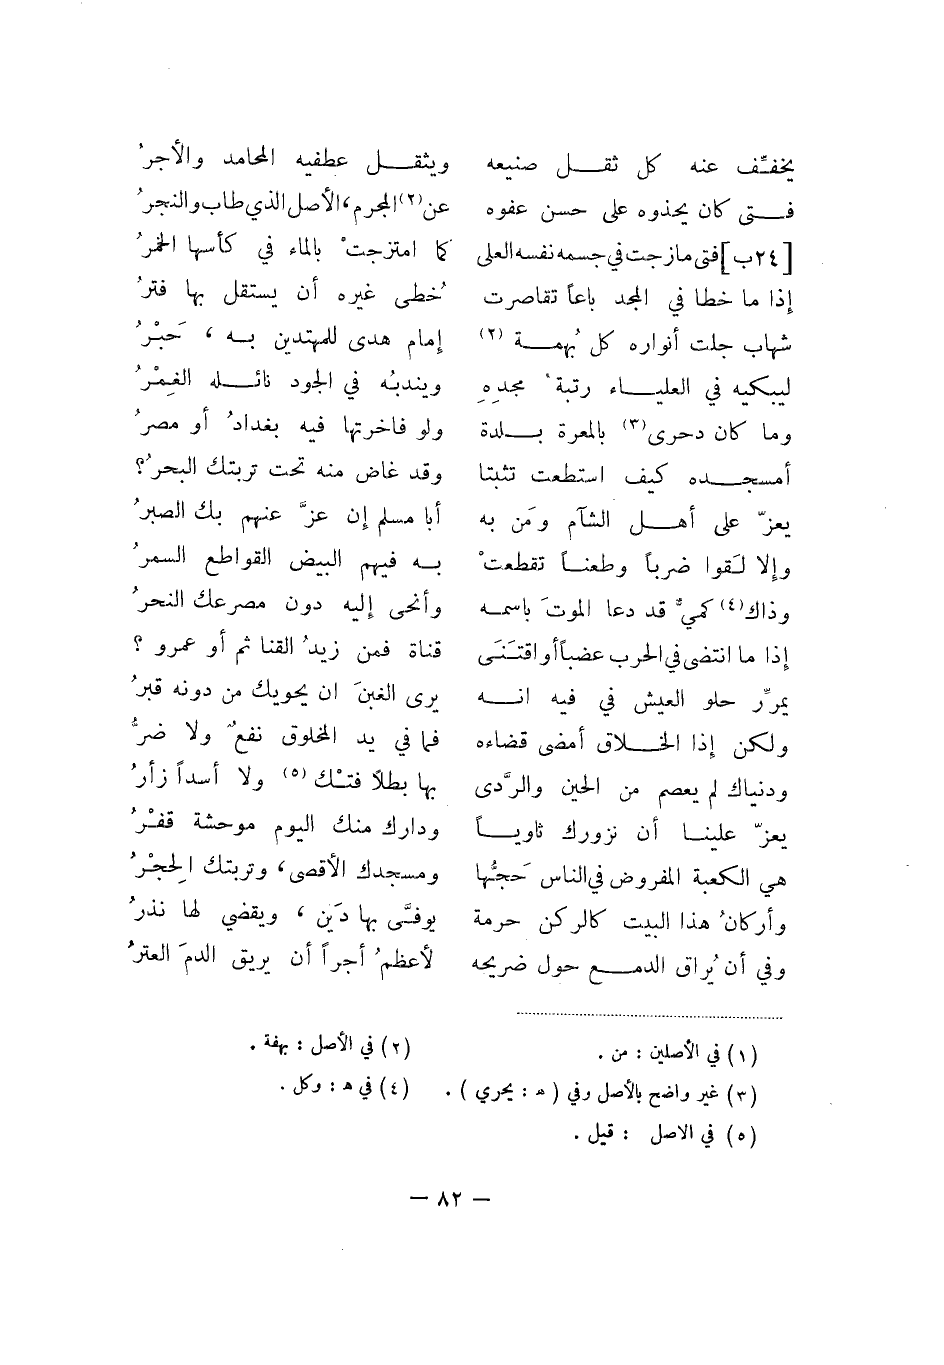 يخفّف عنه كل ثقل صنيعه ويثقل عطفيه المحامد والأجرُ
فتى كان يحذوه على حسن عفوه عن(٢) المجرم، الأصل الذي طاب والنجرُ
[٢٤ب] فتى مازجت في جسمه نفسه العلى كما امتزجتْ بالماء في كأسها الخمرُ
إذا ما خطا في المجد باعاً تقاصرت خُطى غيره أن يستقل بها فترُ
شهاب جلت أنواره كل بُهمة (٢) إمام هدى للمهتدين به ، حَبْرُ
ليبكيه في العلياء رتبةُ مجدِهِ ويندبُه في الجود نائله الغمْرُ
وما كان دحرى(٣) بالمعرة بلدة ولو فاخرتها فيه بغدادُ أو مصرُ
أمسجده كيف استطعت تثبتا وقد غاض منه تحت تربتك البحرُ؟
يعزّ على أهل الشآم ومَن به أبا مسلم إن عزَّ عنهم بك الصبرُ
وإلا لَقوا ضرباً وطعناً تقطعتْ به فيهم البيض القواطع السمرُ
وذاك(٤) كميٌّ قد دعا الموتَ باسمه وأنحى إليه دون مصرعك النحرُ
إذا ما انتضى في الحرب عضباً أو اقتَنَى قناة فمن زيدُ القنا ثم أو عمرو ؟
يمرِّر حلو العيش في فيه انه يرى الغبنَ ان يحويك من دونه قبرُ
ولكن إذا الخلاق أمضى قضاءه فما في يد المخلوق نفعٌ ولا ضرُّ
ودنياك لم يعصم من الحين والرَّدى بها بطلا فتْك (٥) ولا أسداً زأرُ
يعزّ علينا أن نزورك ثاوياً ودارك منك اليوم موحشة قفْرُ
هي الكعبة المفروض في الناس حَجُّها ومسجدك الأقصى، وتربتك الحجْرُ
وأركانُ هذا البيت كالركن حرمة يوفَّى بها دَين ، ويقضي لها نذرُ
وفي أن يُراق الدمع حول ضريحه لأعظمُ أجراً أن يريق الدمَ العترُ
(١) في الأصلين : من . (٢) في الأصل : بهفة .
(٣) غير واضح بالأصل وفي ( هـ : يحري ) . (٤) في هـ : وكل .
(٥) في الاصل : قيل .
— ٨٢ —